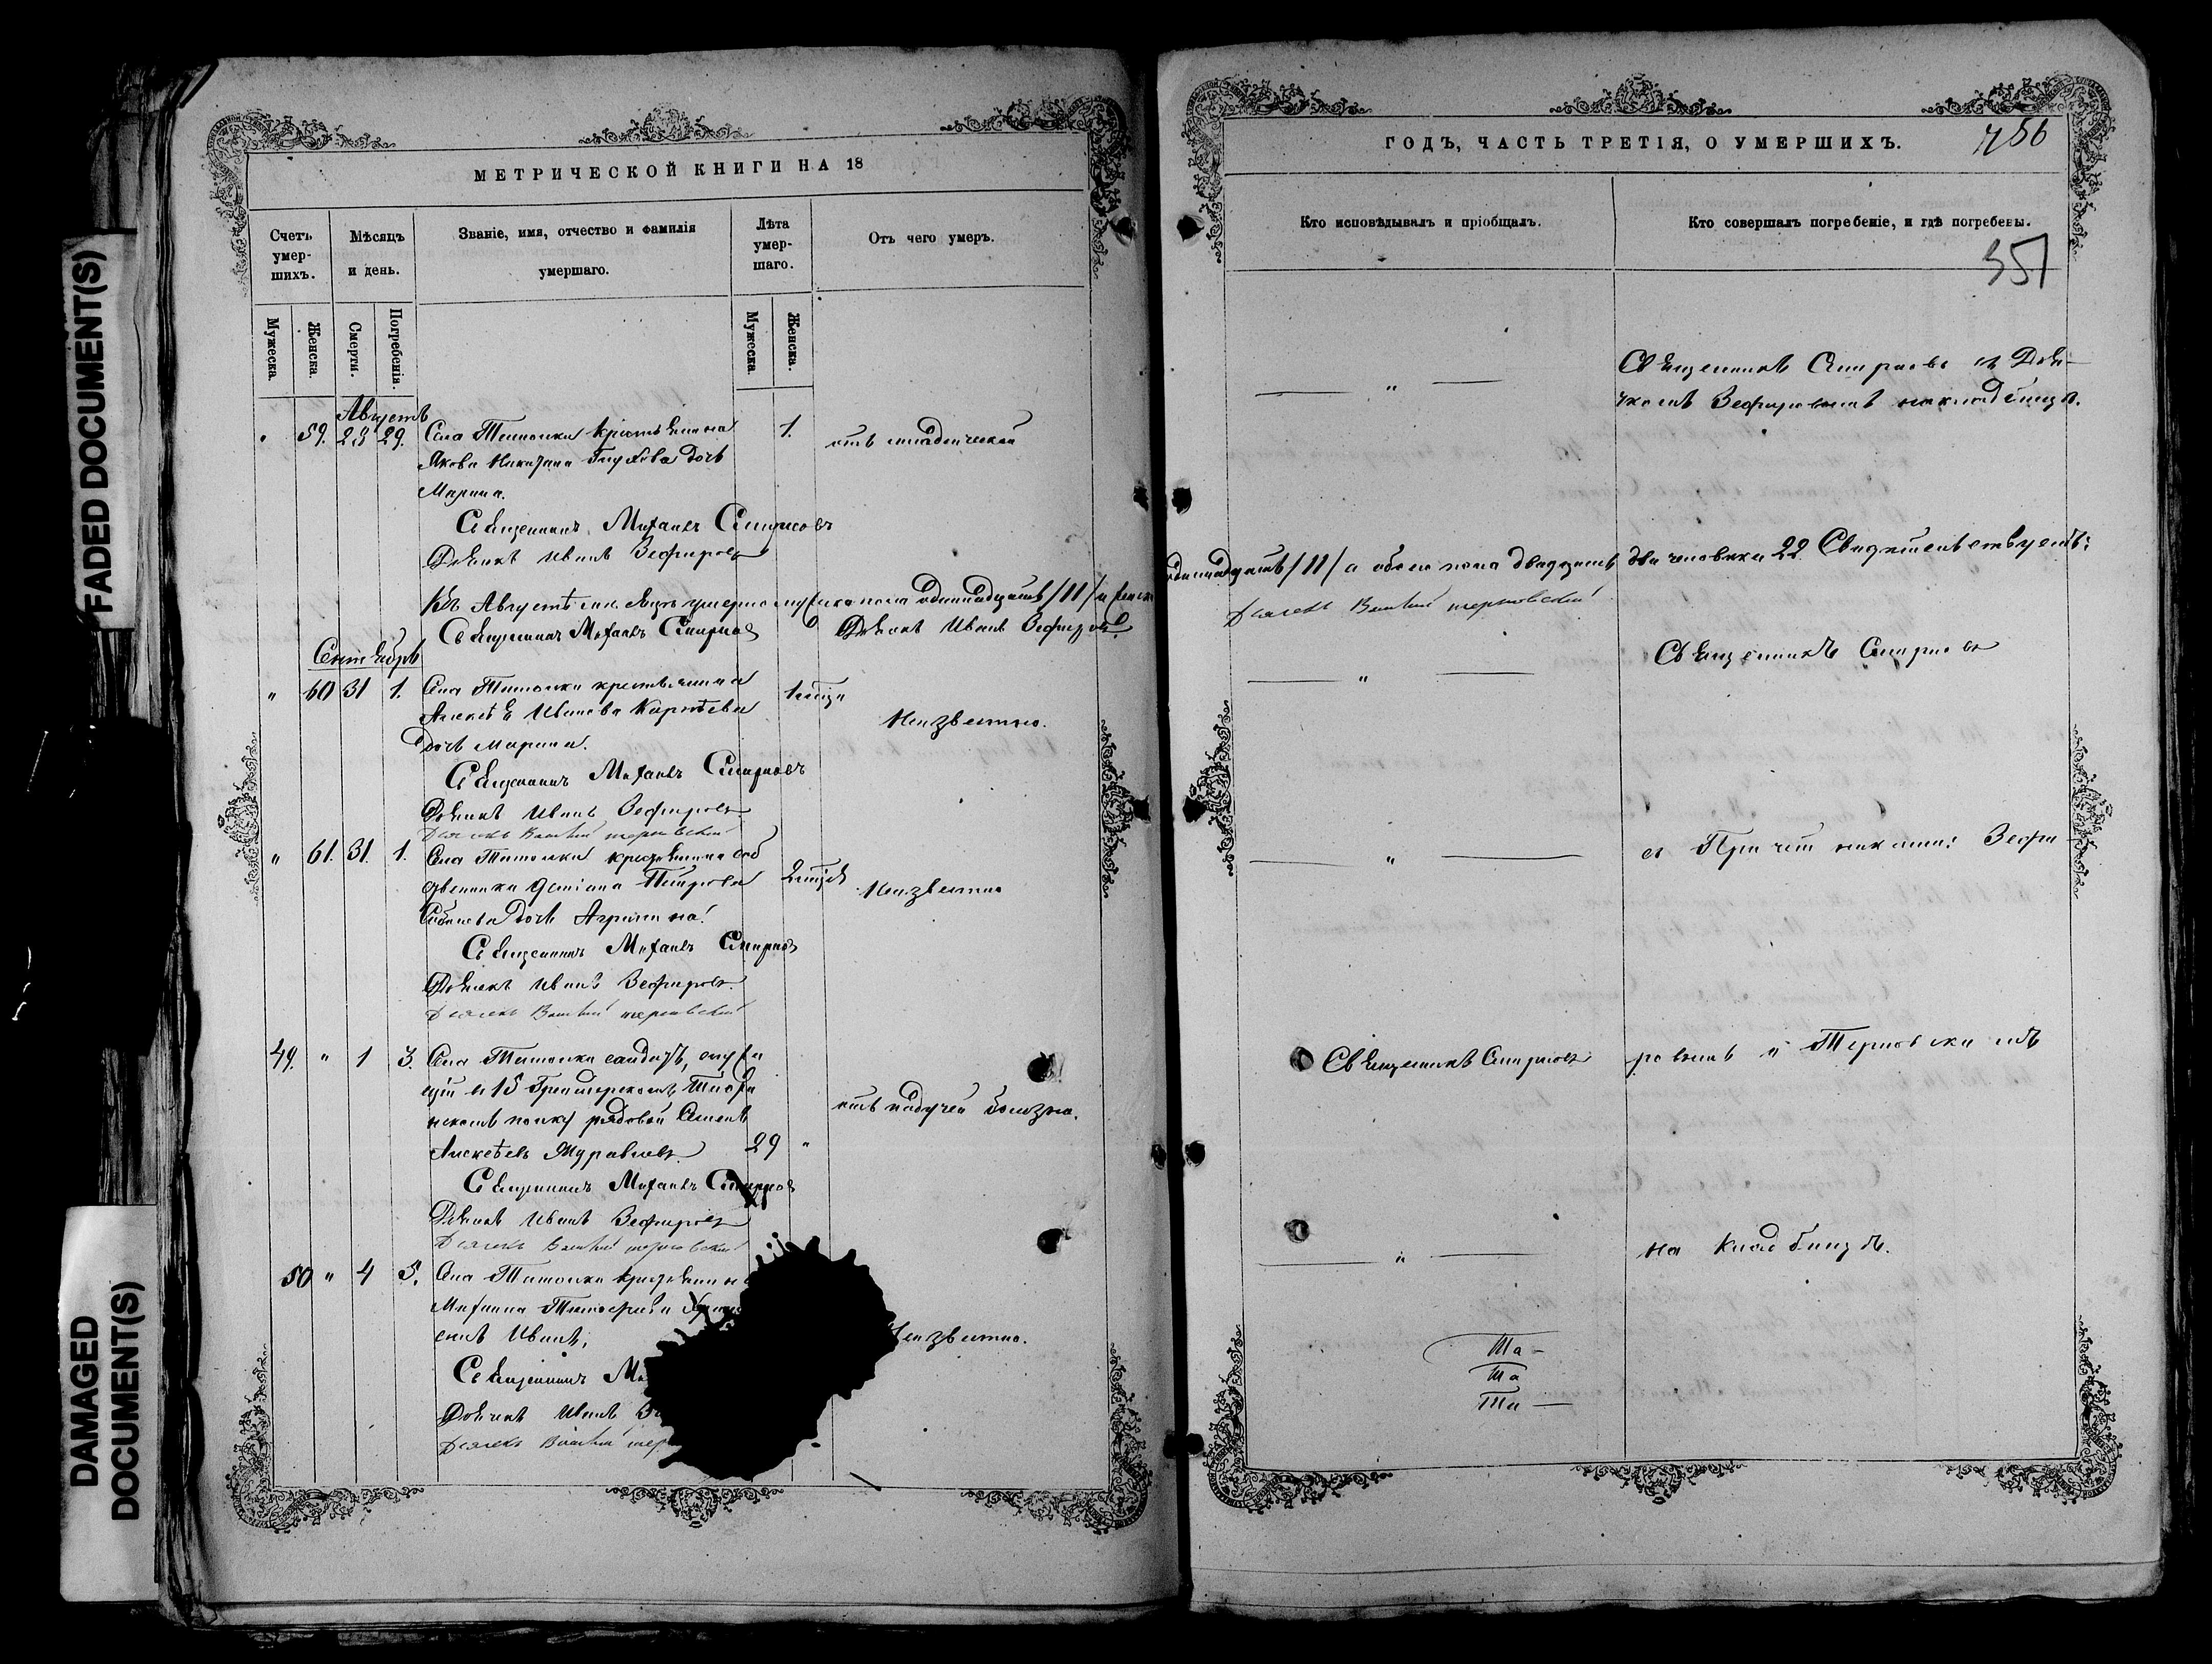 FADED DOCUMENT(S)
DAMAGED
DOCUMENT(S)
МЕТРИЧЕСКОЙ КНИГИ НА 18
Счетъ умер-шихъ.
Мѣсяцъ и день.
Званіе, имя, отчество и фамилія
умершаго.
Лѣта умер-шаго.
Отъ чего умеръ.
Мужеска.
Женска.
Смерти.
Погребенія.
Мужеска.
Женска.
Августъ
" 59. 28 29. Села Титовки крестьянина 1. отъ младенческой
Якова Никитина дочь
Марина.
Священникъ Михаилъ Смирновъ
Дьячекъ Иванъ Зефировъ
Въ Августѣ мѣсяцѣ умерло мужска пола одиннадцать /11/ и женск
Священникъ Михаилъ Смирновъ Дьячекъ Иванъ Зефировъ.
Сентябрь
" 60 31 1. Села Титовки крестьянина
Алексѣя Иванова
дочь Марина. Неизвестно.
Священникъ Михаилъ Смирновъ
Дьячекъ Иванъ Зефировъ
Дьячекъ Василій Терновскій
" 61. 31. 1. Села Титовки крестьянина соб
ственника Петрова Неизвестно
дочь Агрипина.
Священникъ Михаилъ Смирновъ
Дьячекъ Иванъ Зефировъ.
Дьячекъ Василій Терновскій
49. " 1 3. Села Титовки солдатъ, служа
щій въ 15 Гренадерскомъ
полку рядовой Семенъ отъ падучей болезни.
Алексѣевъ Муравлевъ. 29 "
Священникъ Михаилъ Смирновъ
Дьячекъ Иванъ Зефировъ
Дьячекъ Василій Терновскій
50 " 4 5. Села Титовки крестьянина
Михаила Тимофеева
сынъ Иванъ,
Священникъ
Дьячекъ Иванъ
Дьячекъ Василій
ГОДЪ, ЧАСТЬ ТРЕТІЯ, О УМЕРШИХЪ.
Кто исповѣдывалъ и пріобщалъ.
Кто совершалъ погребеніе, и гдѣ погребены.
351
Священникъ Смирновъ съ Дья-
чкомъ Зефировымъ на кладбищѣ.
одиннадцать /11/ а обоего пола двадцать два человека 22 Свидетельствуемъ:
Дьячекъ Василій Терновскій
Священникъ Смирновъ
съ Причетниками: Зефи
Священникъ Смирновъ ровымъ и Терновскимъ
на кладбищѣ.